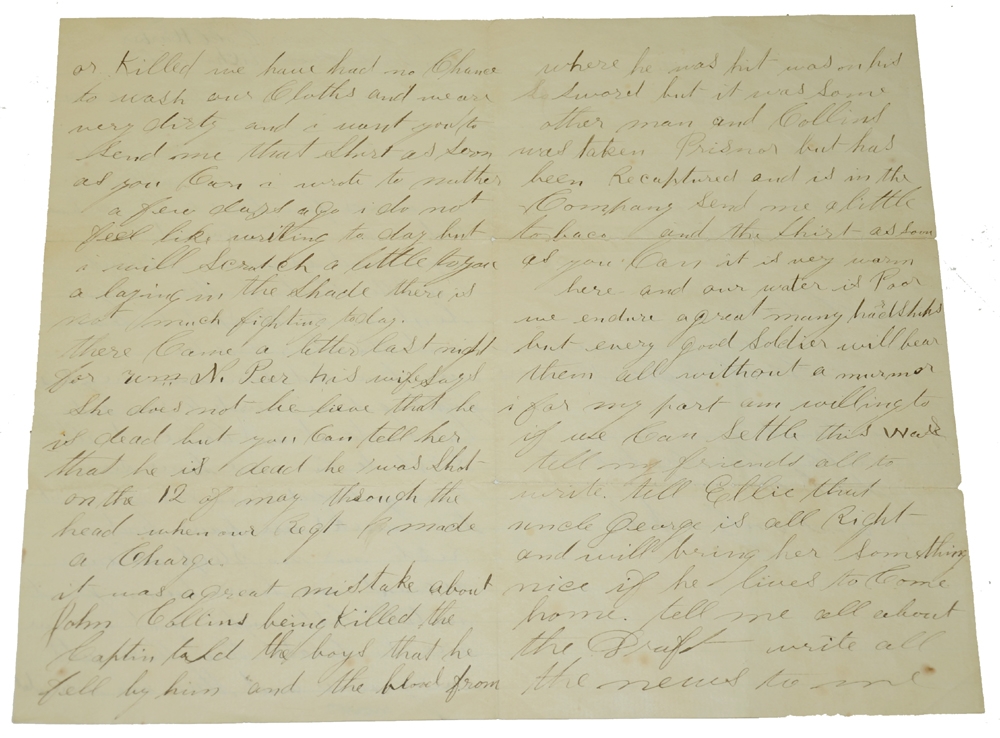 or Killed we have had no Chance
to wash our Cloths and we are
very dirty and i want you to
Send me that Shirt as Soon
as you Can i wrote to mother
a few days ago i do not
feel like writing to day but
i will scratch a little to you
a laying in the Shade there is
not much fighting today.
there Came a letter last night
for Wm N. Peer his wife Says
She does not be lieve that he
is dead but you Can tell her
that he is dead he was Shot
on the 12 of may through the
head when our Regt made
a Charge.
it was a great mistake about
John Collins being Killed the
Captin told the boys that he
fell by him and the blood from
where he was hit was on his
Sword but it was Some
other man and Collins
was taken Prisnor but has
been Recaptured and is in the
Company Send me a little
tobaco and the Shirt as Soon
as you Can it is very warm
here and our water is Poor
we endure a great many hadships
but every good Soldier will bear
them all without a murmor
i for my part am willing to
if we Can Settle this War
tell my friends all to
write. tell Ellie that
uncle George is all Right
and will bring her Something
nice if he lives to Come
home. tell me all about
the Draft write all
the news to me